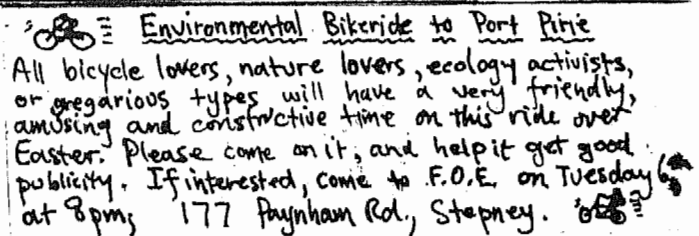 Environmental Bikeride to Port Pirie
All bicycle lovers, nature lovers, ecology activists,
or gregarious types will have a very friendly,
amusing and constructive time on this ride over
Easter. Please come on it, and help it get good
publicity. If interested, come to F.O.E. on Tuesday
at 8pm, 177 Paynham Rd., Stepney.